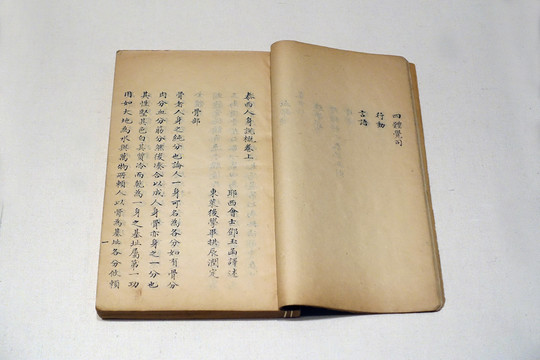 四體覺司
行動
言語
泰西人身說概卷上
耶西會士鄧玉函譯述
東萊後學畢拱辰潤定
骨部
骨者人身之純分也論人一身可名為各分如有骨分
肉分血分筋分總後湊合以成人身骨亦身之一分也
其性堅其色白其質冷而乾為一身之基址屬第一功
用如大地為水與萬物所賴人以骨為基址各分依賴